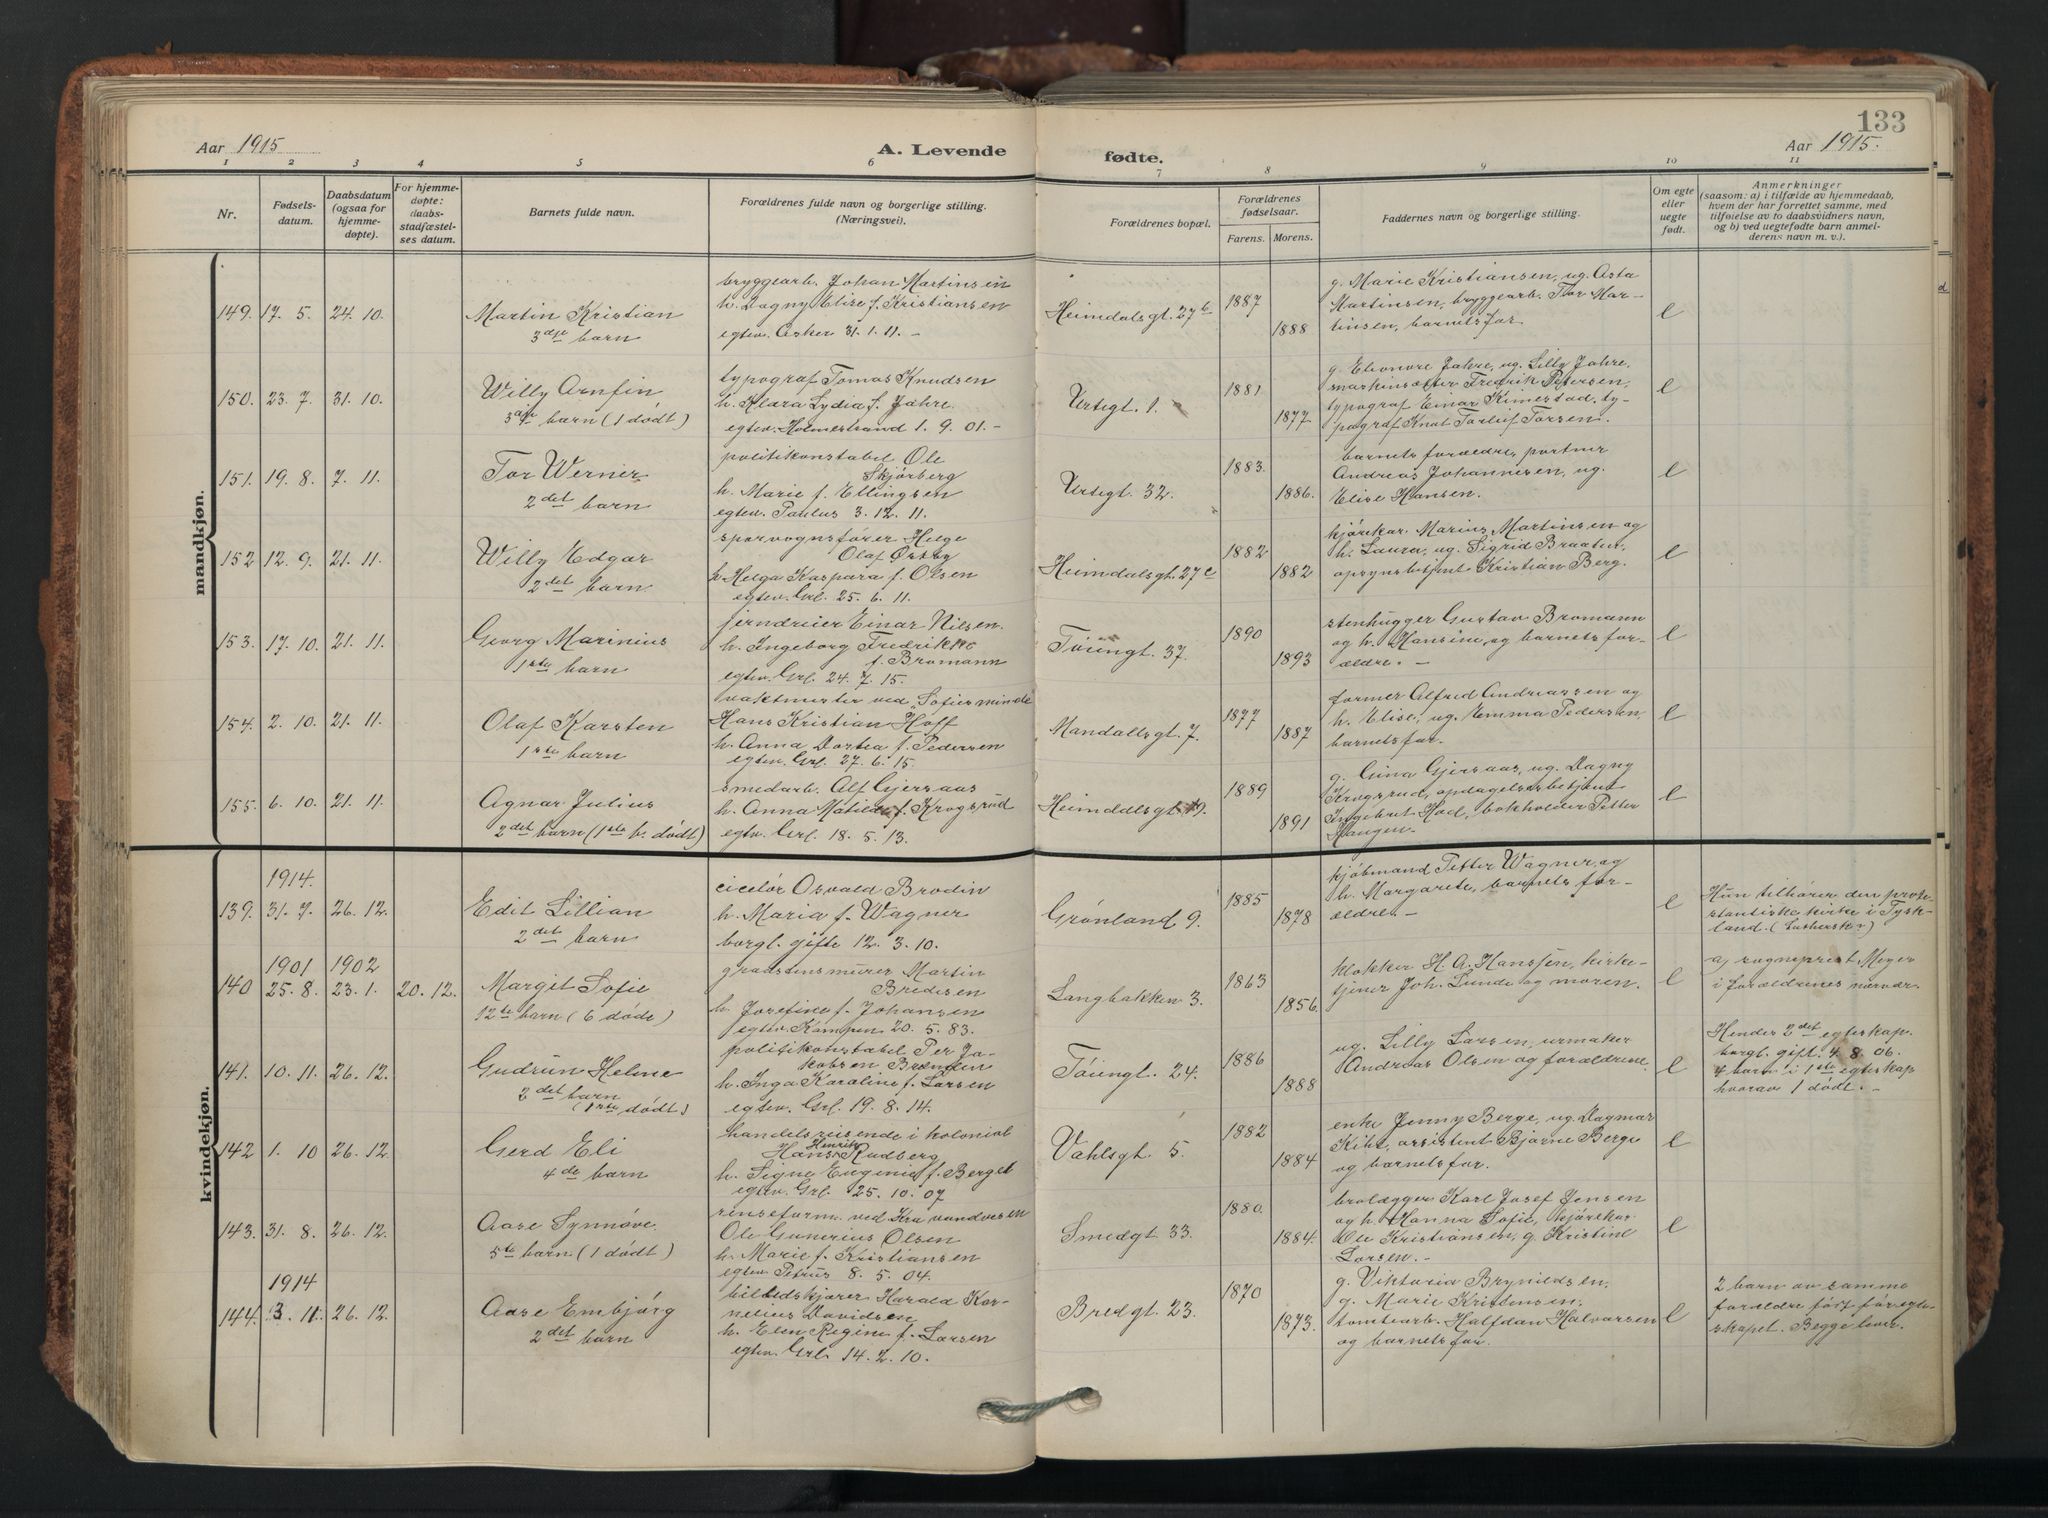 133
Aar 1915 A. Levende fødte. Aar 1915.
1 2 3 4 5 6 7 8 9 10 11
Nr. Fødselsdatum. Daabsdatum (ogsaa for hjemmedøpte). For hjemmedøpte: daabsstadfæstelses datum. Barnets fulde navn. Forældrenes fulde navn og borgerlige stilling. (Næringsvei). Forældrenes bopæl. Forældrenes fødselsaar. Farens. Morens. Faddernes navn og borgerlige stilling. Om egte eller uegte født. Anmerkninger (saasom: a) i tilfælde av hjemmedaab, hvem der har forrettet samme, med tilføielse av to daabsvidners navn, og b) ved uegtefødte barn anmelderens navn m. v.).
mandkjøn.
149. 17. 5. 24. 10. Martin Kristian
3dje barn
bryggearb. Johan Martinsen
h. Dagny Elise f. Kristiansen
egtev. Asker 31. 1. 11. –
Heimdalsgt. 27b 1887 1888
g. Marie Kristiansen, ug. Asta
Martinsen, bryggearb. Thor Mar-
tinsen, barnets far
e
150. 23. 7. 31. 10. Willy Arnfin
3dje barn (1 dödt)
typograf Tomas Knudsen
h. Klara Lydia f. Jahre
egtev. Holmestrand 1. 9. 01. –
Urtegt. 1. 1881 1877
g. Eleonore Jahre, ug. Lilly Jahre,
maskinsætter Fredrik Petersen,
typograf Einar Kimestad, ty-
pograf Knut Torleif Torsen.
e
151. 19. 8. 7. 11. Tor Werner
2det barn
politikonstabel Ole
Skjørberg
h. Marie f. Ellingsen
egtev. Paulus 3. 12. 11.
Urtegt. 32. 1883. 1886.
barnets forældre, portner
Andreas Johannesen, ug.
Elise Hansen.
e
152 12. 9. 21. 11. Willy Edgar
2det barn
sporvognsfører Helge
Olaf Østby
h. Helga Kaspara f. Olsen
egtev. Grl. 25. 6. 11.
Heimdalsgt. 27c 1882 1882
kjörekar. Marius Martinsen og
h. Laura, ug. Sigrid Braaten,
opsynsbetjent Kristian Berg.
e
153. 17. 10. 21. 11. Georg Marinius
1ste barn
jerndreier Einar Nilsen.
h. Ingeborg Fredrikke
f. Bromann
egtev. Grl. 24. 7. 15.
Töiengt. 37. 1890 1893
stenhugger Gustav Bromann
og h. Hansine, og barnets for-
ældre. –
e
154. 2. 10. 21. 11. Olaf Karsten
1ste barn
vaktmester ved „Sofiesminde
Hans Kristian Hoff
h. Anna Dortea f. Pedersen
egtev. Grl. 27. 6. 15.
Mandallsgt. 7. 1877 1887
former Alfred Andreassen og
h. Elise, ug. Emma Pedersen,
barnets far.
e
155. 6. 10. 21. 11. Agnar Julius
2det barn (1ste b. dödt)
smedarb. Alf Gjersaas
h. Anna Matilde f. Krogsrud
egtev. Grl. 18. 5. 13.
Heimdalsgt. 1889 1891
g. Gina Gjersaas, ug. Dagny
Krogsrud, opdagelsesbetjent
Ingebret Hod, bokholder Petter
Haugen.
e
kvindekjøn.
1914.
139. 31. 7. 26. 12. Edit Lillian
2det barn
ciselör Osvald Brodin
h. Maria f. Wagner
borgl. gifte 12. 3. 10.
Grönland 9. 1885 1878
kjöbmand Petter Wagner, og
h. Margarete, barnets for-
ældre. –
e
Hun tilhörer den prote-
stantiske kirke i Tysk-
land. (Luthersk)
1901 1902
140 25. 8. 23. 1. 20. 12. Margit Sofie
12te barn (6 döde)
graastensmurer Martin
Bredesen
h. Josefine f. Johansen
egtev. Kampen 20. 5. 83.
Langbakken 3. 1863 1856.
klokker H. A. Hanssen, kirke-
tjener Joh. Lunde og moren.
e
af sogneprest Meyer
i forældrenes nærvær.
141. 10. 11. 26. 12. Gudrun Helene
2det barn
(1ste dödt)
politikonstabel Per Ja-
kobsen Brænden
h. Inga Karaline f. Larsen
egtev. Grl. 19. 8. 14.
Töiengt. 24. 1886 1888
ug. Lilly Larsen, urmaker
Andreas Olsen og forældrene.
e
Hendes 2det egteskap.
borgl. gift 4. 8. 06.
4 barn i 1ste egteskap
hvorav 1 dödt. –
142 1. 10 26. 12. Gerd Eli
4de barn
handelsreisende i kolonial
Hans Henrik Rudberg
h. Signe Eugenie f. Berget
egtev. Grl. 25. 10. 07
Vahlsgt. 5. 1882 1884
enke Jenny Berge, ug. Dagmar
Kihl, assistent Bjarne Berge
og barnets far.
e
143. 31. 8. 26. 12. Aase Synnöve.
5te barn (1 dödt)
renseform. ved Kra vandvesen
Ole Gunerius Olsen
h. Marie f. Kristiansen
egtev. Petrus 8. 5. 04.
Smedgt. 33. 1880. 1884.
brolægger Karl Josef Jensen
og h. Hanna Sofie, kjörekar
Ole Kristiansen, g. Kristine
Larsen. –
e
1914
144. 3. 11. 26. 12. Aase Embjörg
2det barn
billedskjærer Harald Kor-
nelius Davidsen
h. Elen Regine f. Larsen
egtev. Grl. 14. 2. 10.
Bredgt. 23. 1870 1873.
g. Viktoria Brynildsen,
g. Marie Kristensen,
tomtearb. Halfdan Halvorsen
og barnets far.
e
2 barn av samme
forældre født før egte-
skapet. Begge lever.